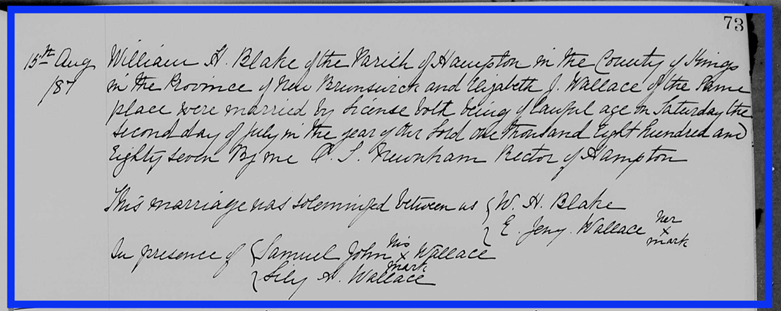 73
15th Aug William H. Blake of the Parish of Hampton in the County of Kings
/87 in the Province of New Brunswick and Elizabeth J. Wallace of the same
place were married by License both being of lawful age on Saturday the
second day of July in the year of Our Lord One thousand Eight hundred and
Eighty seven By me O. S. Newnham Rector of Hampton
This marriage was solemnized between us { W. H. Blake
E. Jeny. Wallace her x mark
In presence of { Samuel John his x mark Wallace
Lily A. Wallace